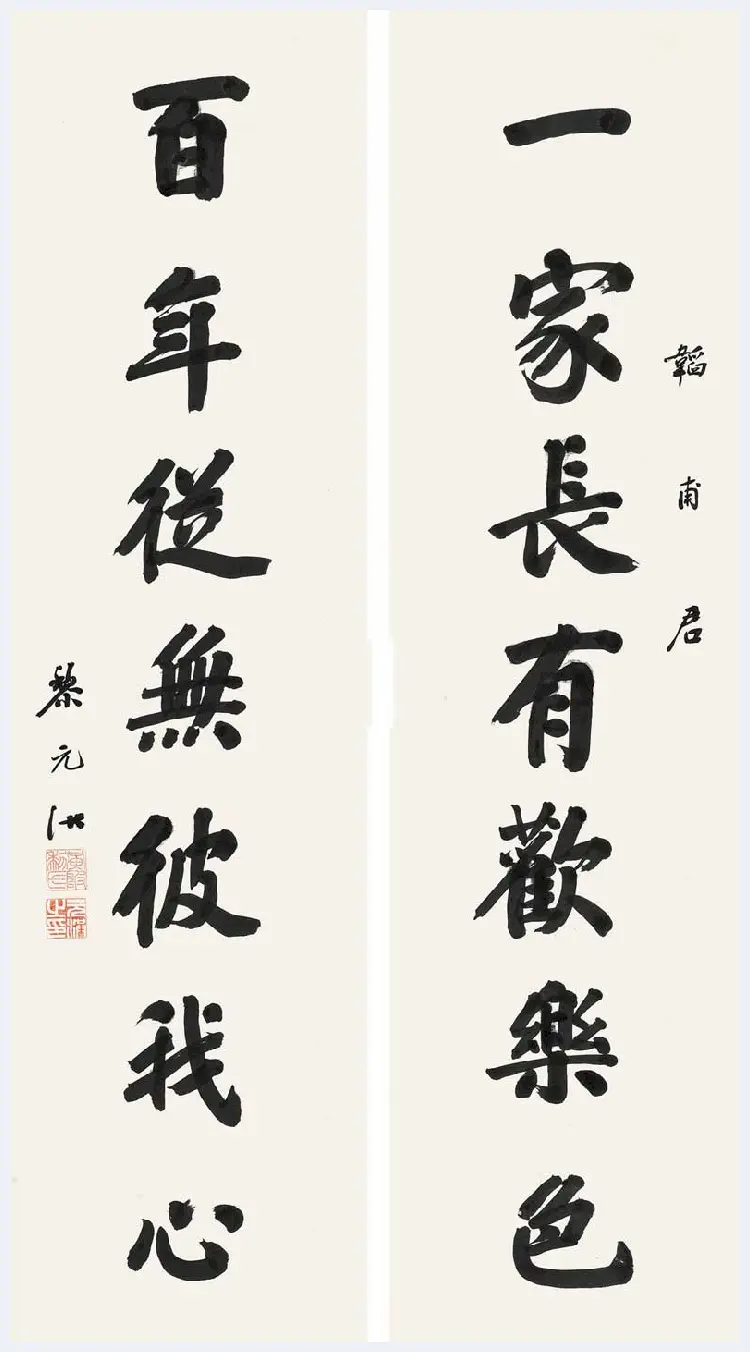 韜甫君
一家長有歡樂色
百年從無彼我心
黎元洪